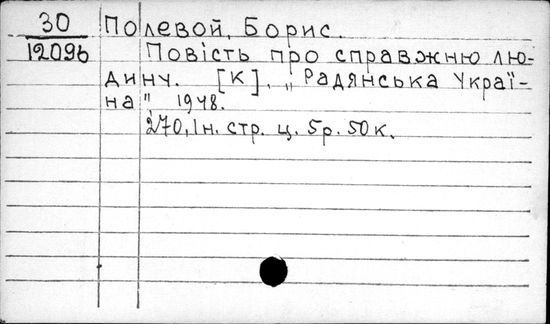 30 Полевой, Борис.
12096 Повість про справжню лю-
дину. [К], „Радянська Украї-
на", 1948.
270, Iн. стр. ц. 5р. 50к.